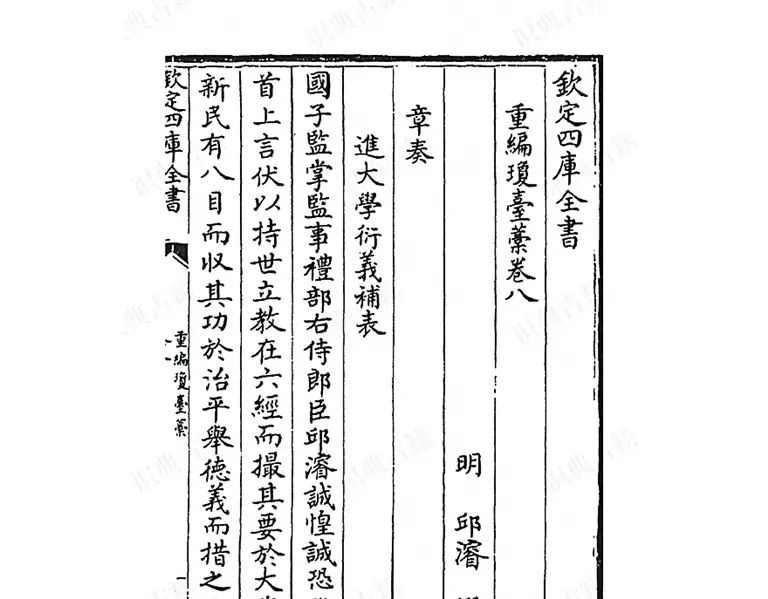 欽定四庫全書
重編瓊臺藁卷八
明　邱濬
章奏
進大學衍義補表
國子監掌監事禮部右侍郎臣邱濬誠惶誠恐
首上言伏以持世立教在六經而撮其要於大
新民有八目而收其功於治平舉德義而措之
欽定四庫全書
重編瓊臺藁